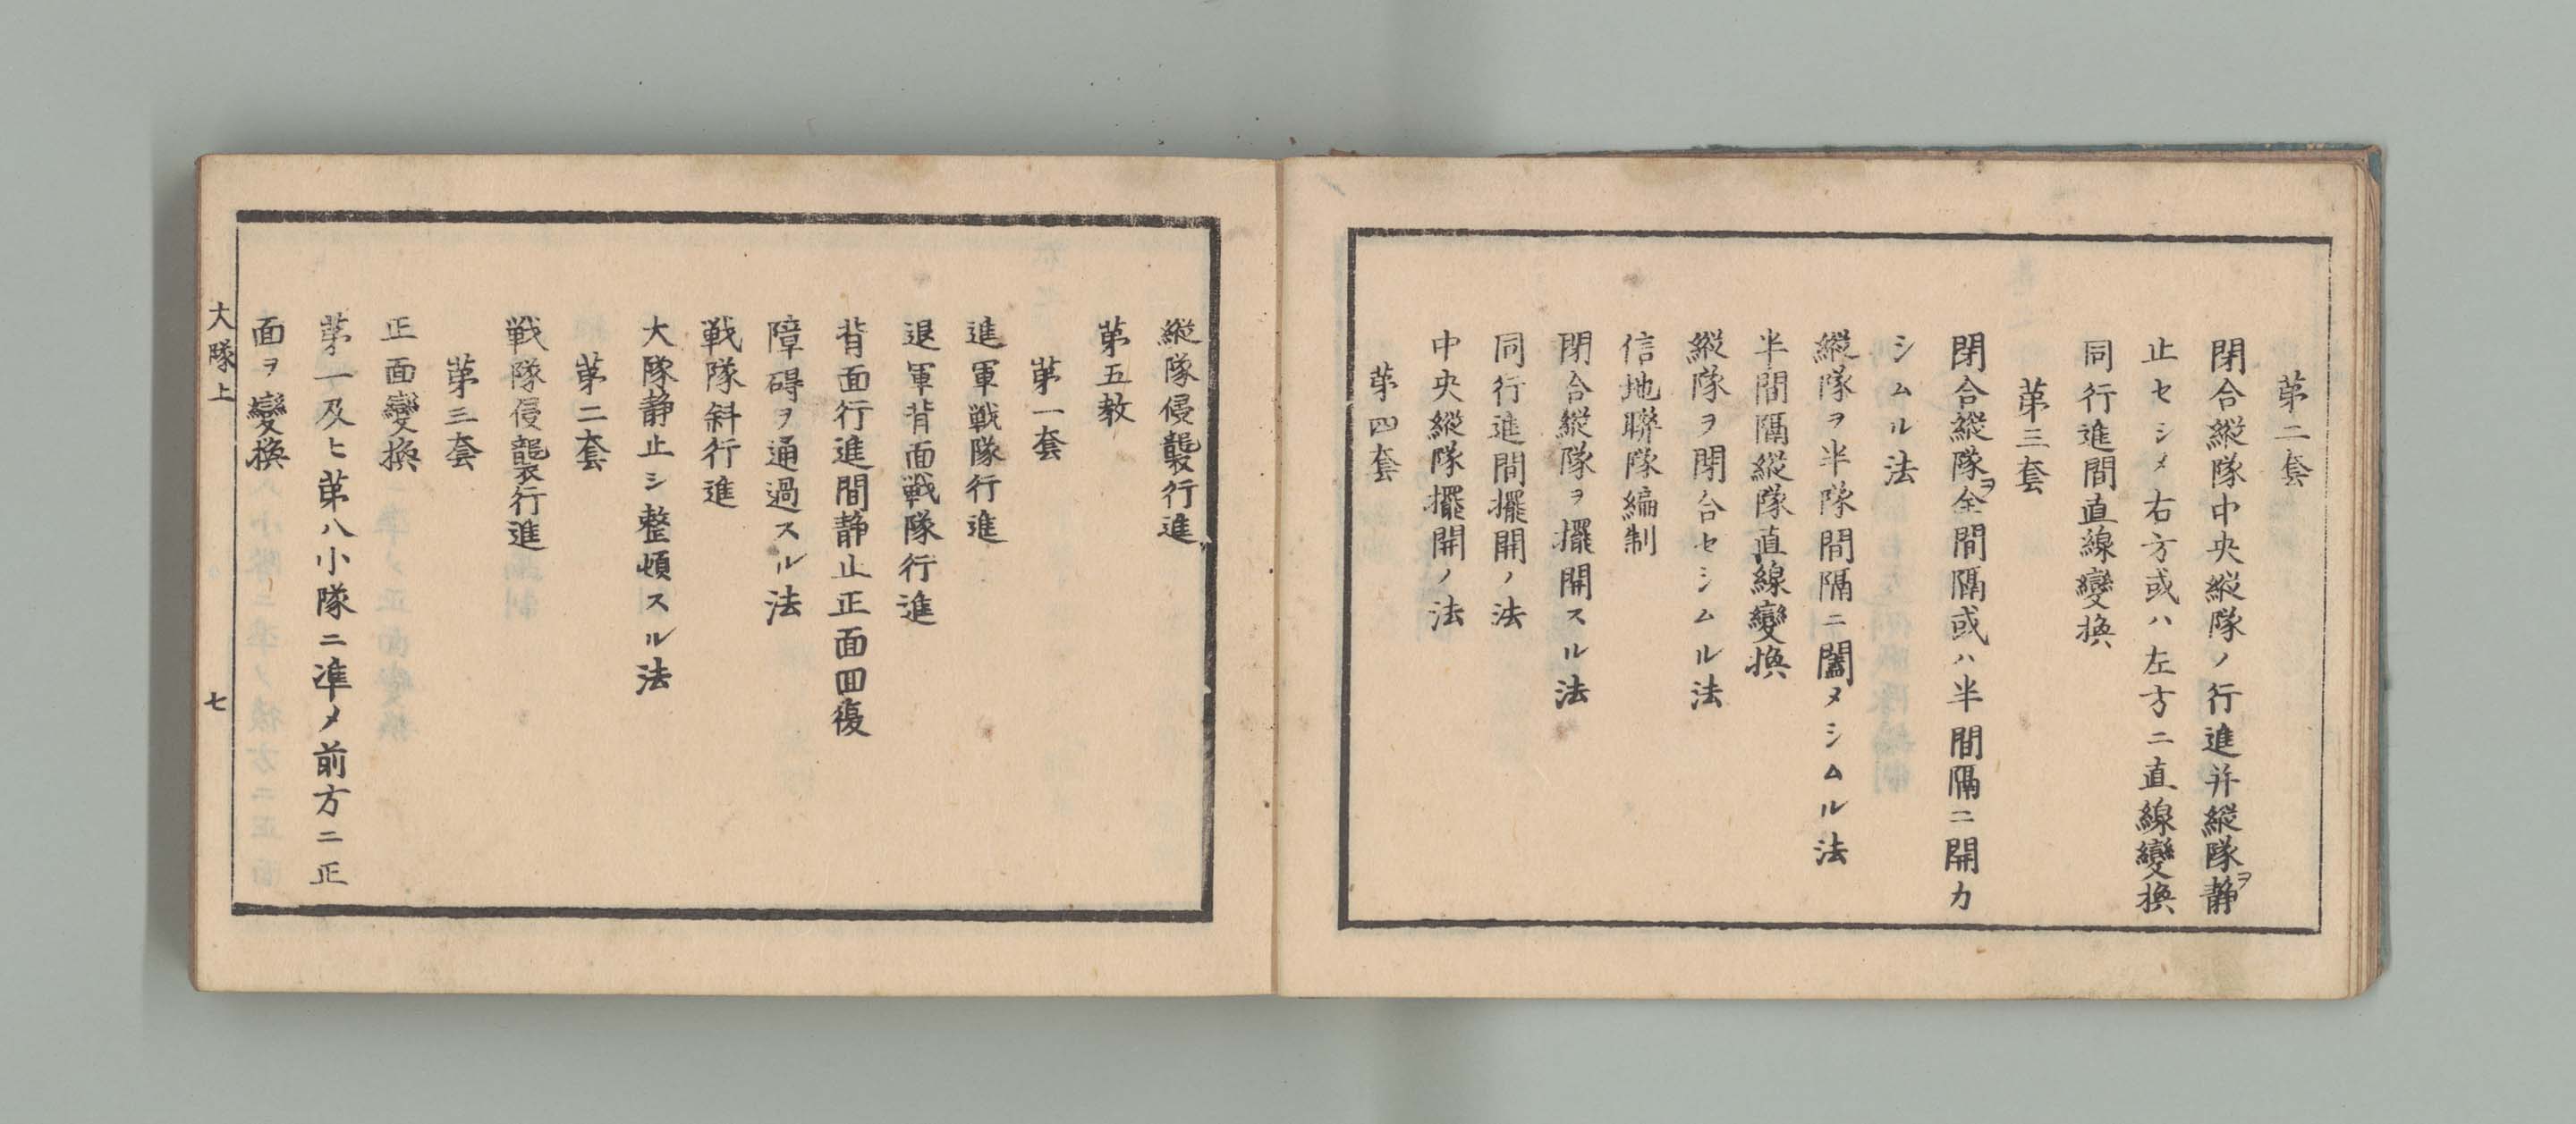 第二套
閉合縦隊中央縦隊ノ行進并縦隊ヲ静
止セシメ右方或ハ左方ニ直線變換
同行進間直線變換
第三套
閉合縦隊ヲ全間隔或ハ半間隔ニ開カ
シムル法
縦隊ヲ半隊間隔ニ闔メシムル法
半間隔縦隊直線變換
縦隊ヲ閉合セシムル法
信地聯隊編制
閉合縦隊ヲ擺開スル法
同行進間擺開ノ法
中央縦隊擺開ノ法
第四套
縦隊侵襲行進
第五教
第一套
進軍戦隊行進
退軍背面戦隊行進
背面行進間静止正面回復
障碍ヲ通過スル法
戦隊斜行進
大隊静止シ整頓スル法
第二套
戦隊侵襲行進
第三套
正面變換
第一及ヒ第八小隊ニ準メ前方ニ正
面ヲ變換
大隊上
七